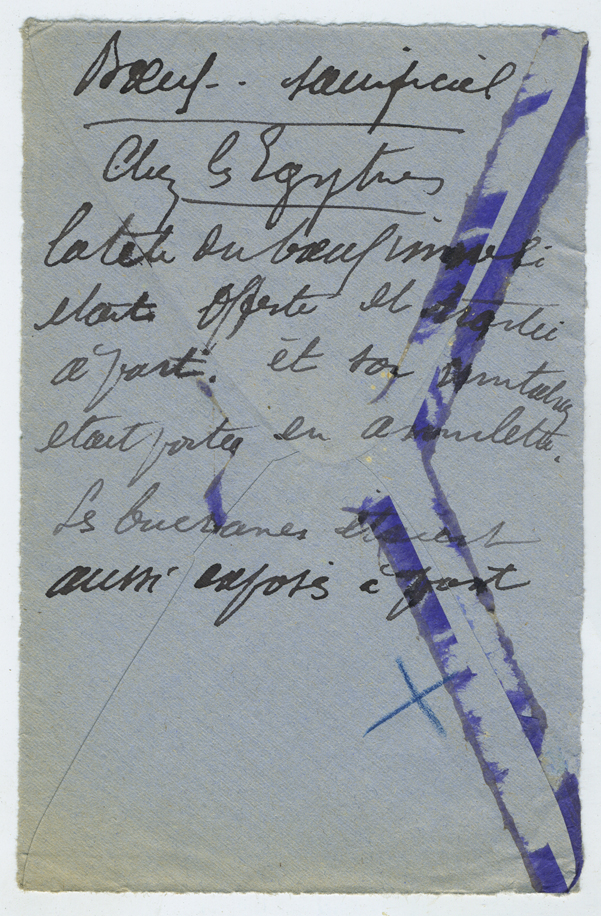 Bœuf - . sacrificiel
Chez les Egyptiens
la tete du bœuf immolé
etait offerte et
à part. et son
etait portée en amulette.
Les bucranes étaient
aussi exposés à part